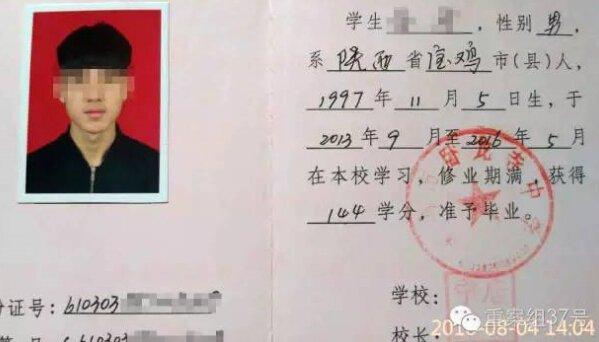 学生，性别 男，
系 陕西 省 宝鸡 市(县)人，
1997 年 11 月 5 日生，于
2013 年 9 月至 2016 年 5 月
在本校学习，修业期满，获得
144 学分，准予毕业。
份证号：610303
号：
学校：
校长：
重案组37号
2016-08-04 14:04